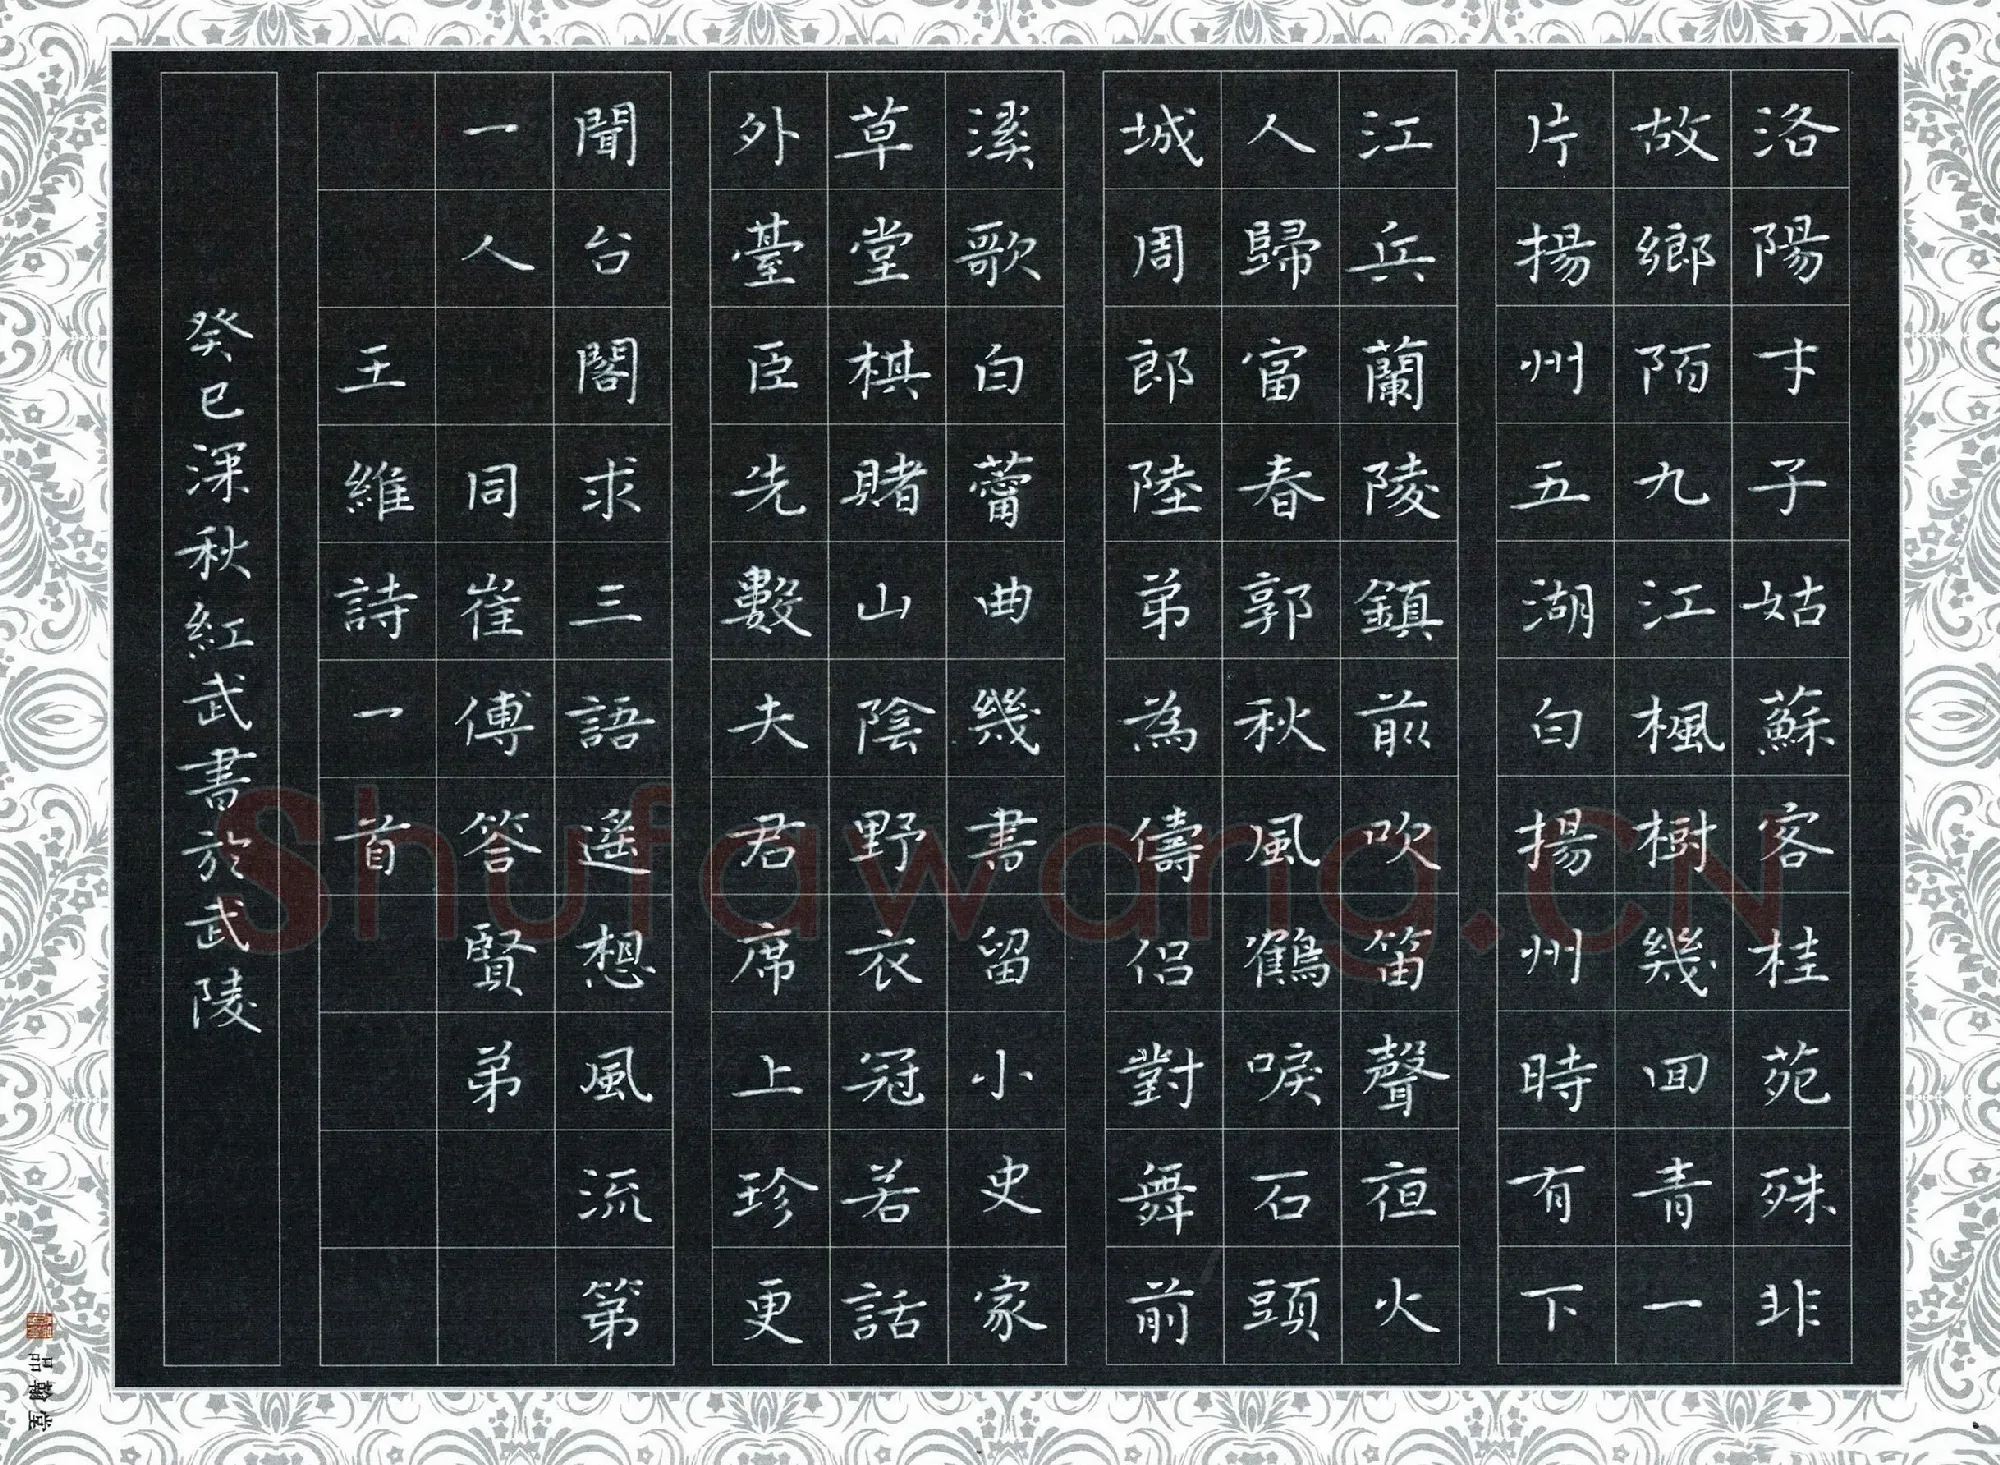 洛陽才子姑蘇客桂苑殊非
故鄉陌九江楓樹幾回青一
片揚州五湖白揚州時有下
江兵蘭陵鎮前吹笛聲夜火
人歸富春郭秋風鶴唳石頭
城周郎陸弟為儔侶對舞前
溪歌白蕾曲幾書留小史家
草堂棋賭山陰野衣冠若話
外臺臣先數夫君席上珍更
聞台閣求三語遙想風流第
一人 同崔傅答賢弟
王維詩一首
癸巳深秋紅武書於武陵
Shufawang.CN
晶翰堂